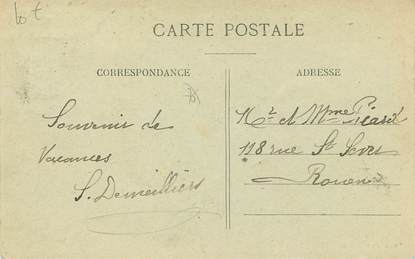 Lot
CARTE POSTALE
CORRESPONDANCE
Souvenir de
Vacances
S. Demeilliers
ADRESSE
Mr et Mme Picard
118 rue St Sever
Rouen